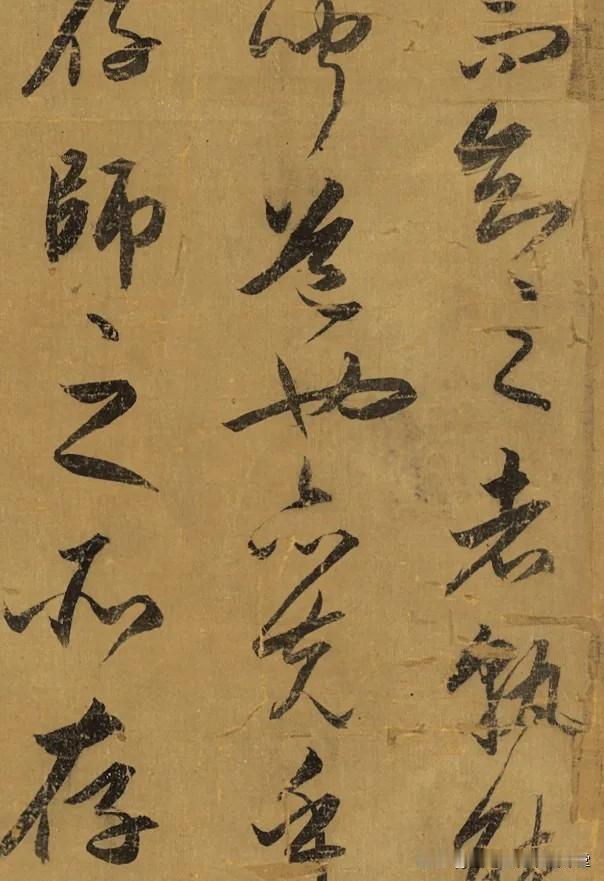 而知之者孰能
聞道也亦先乎
存師之所存